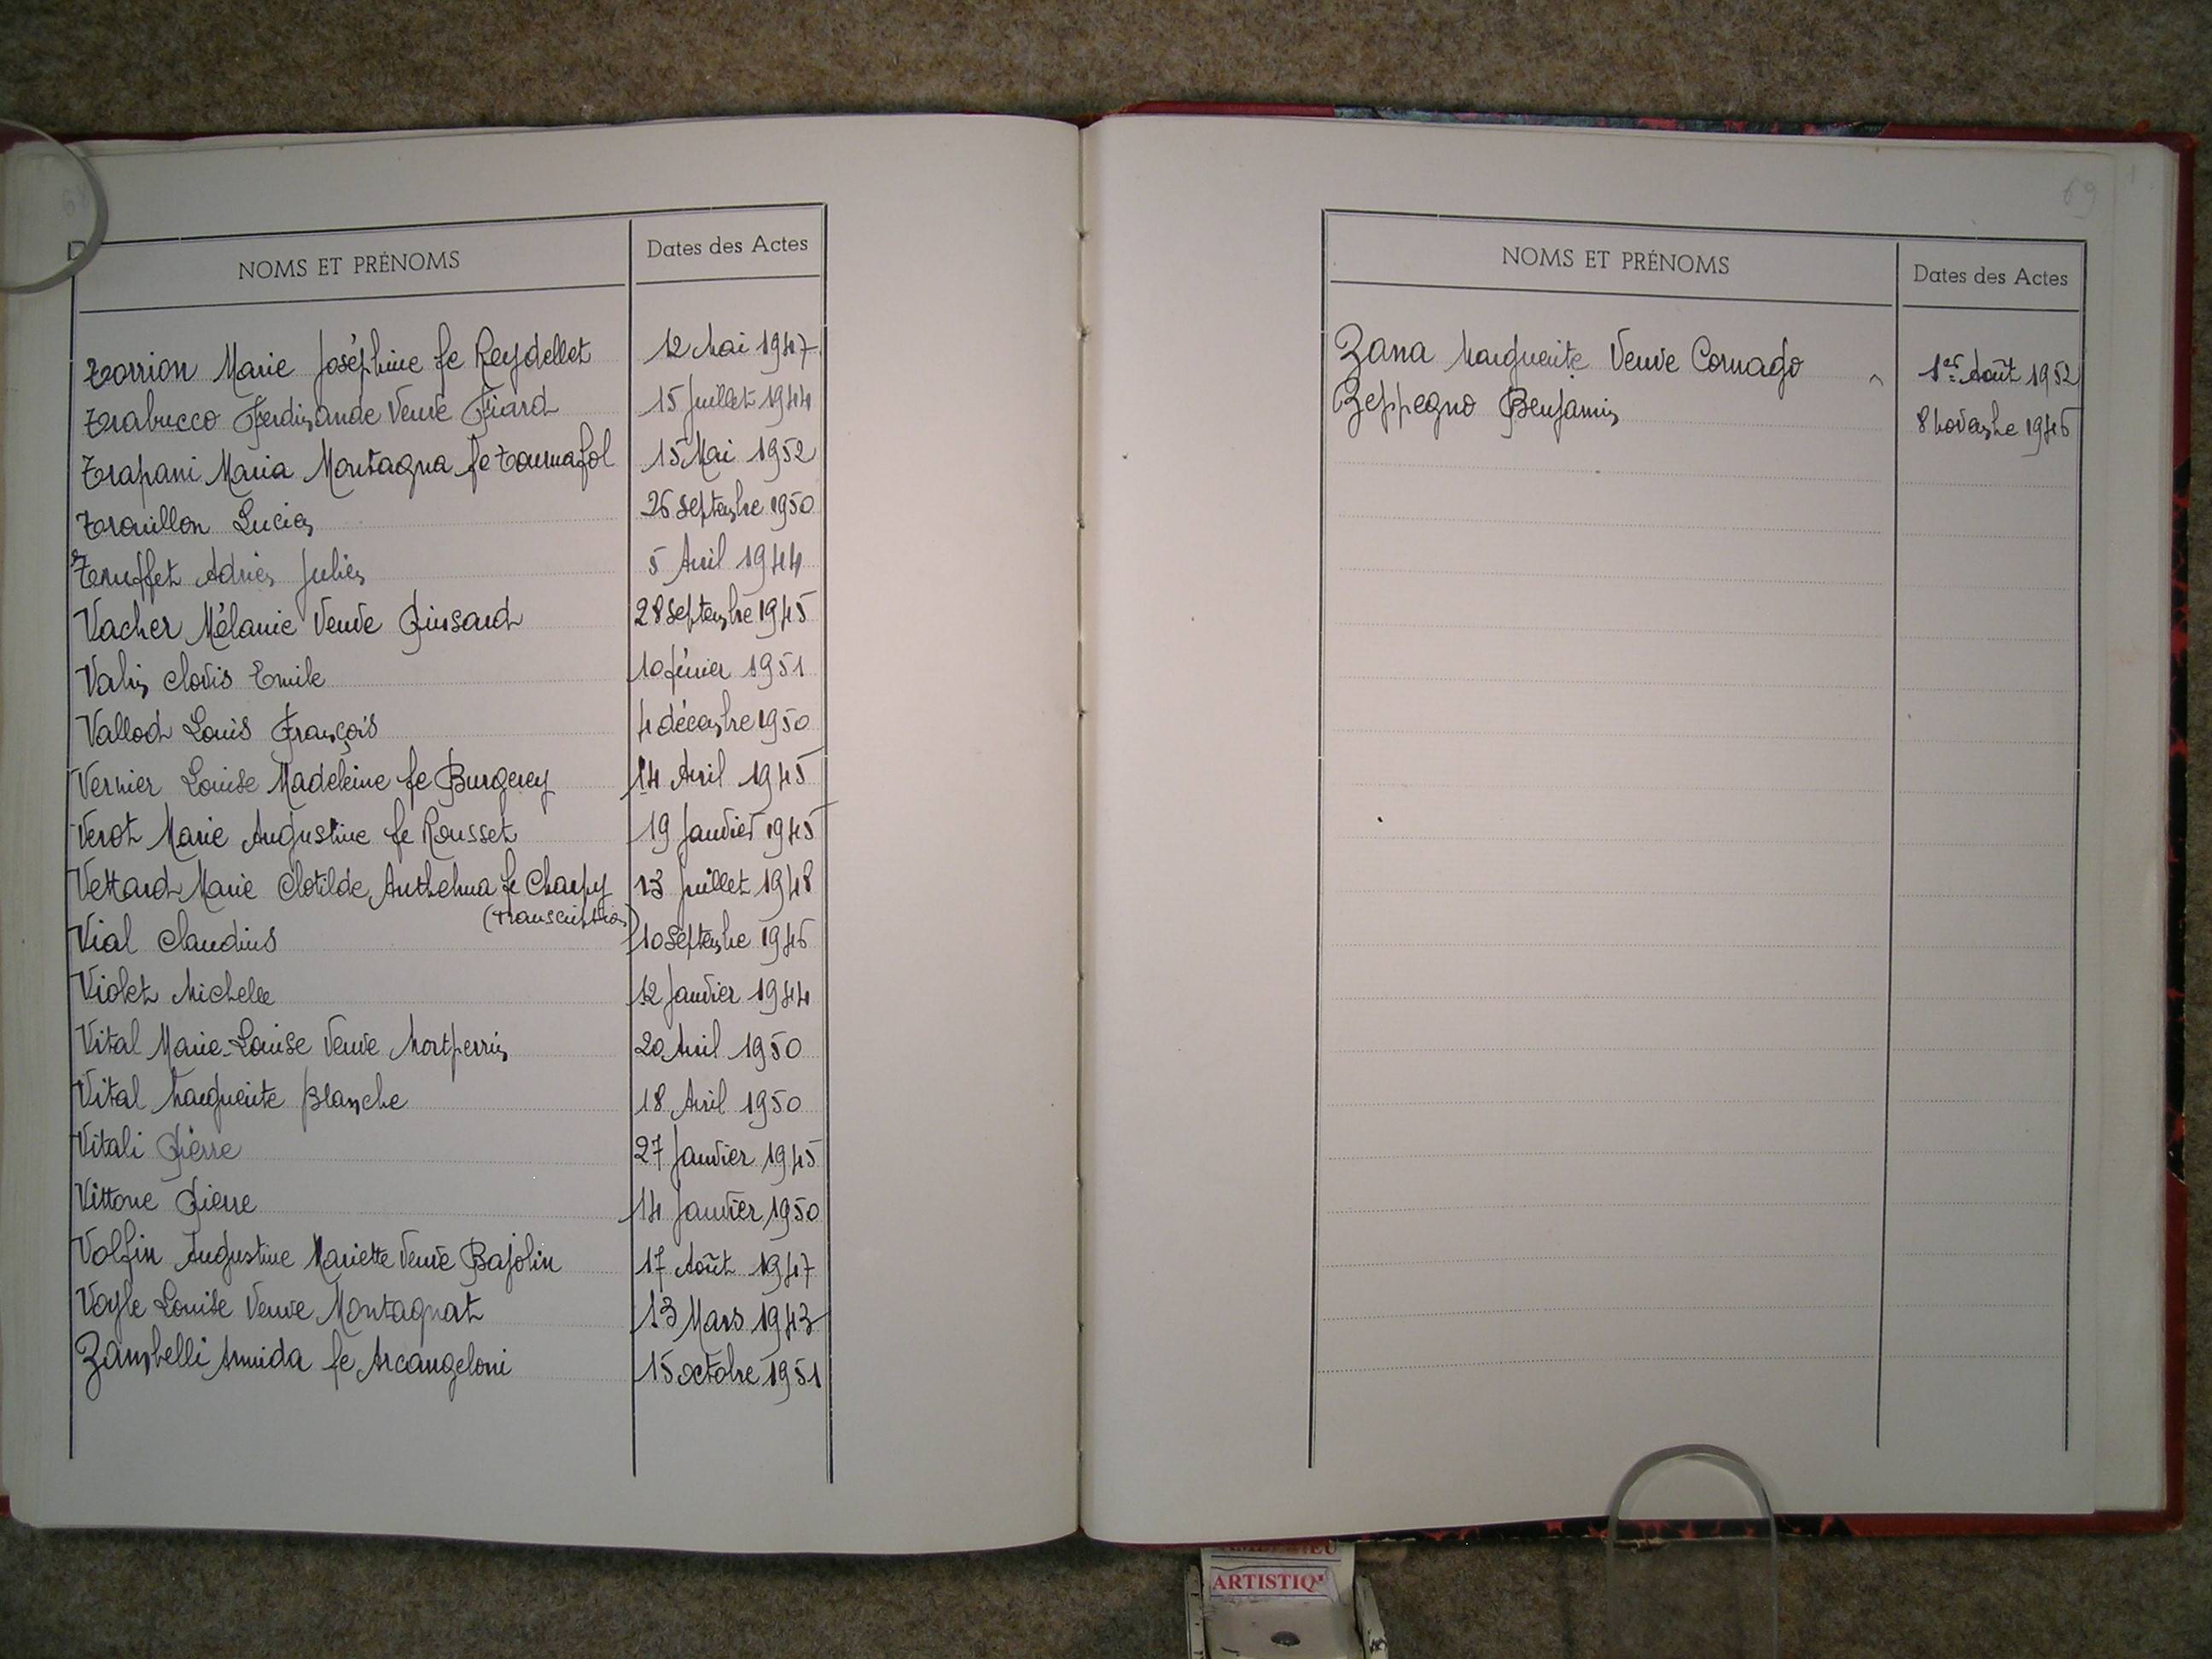 NOMS ET PRÉNOMS Dates des Actes
Torrion Marie Joséphine fe Reydellet 12 Mai 1947
Trabucco Ferdinande Veuve Fiard 15 Juillet 1944
Trapani Maria Montagna fe Tournafol 15 Mai 1952
Trouillon Lucien 26 Septembre 1950
Truffet Adrien Julien 5 Avril 1944
Vacher Mélanie Veuve Pinsard 28 Septembre 1945
Valin Clovis Emile 10 février 1951
Vallod Louis François 4 décembre 1950
Vernier Louise Madeleine fe Burgerey 14 Avril 1945
Verot Marie Augustine fe Rousset 19 Janvier 1945
Vettard Marie Clotilde Anthelma fe Charpy 13 Juillet 1948
(transcription)
Vial Claudius 10 Septembre 1946
Violet Michelle 12 Janvier 1944
Vital Marie-Louise Veuve Montperrin 20 Avril 1950
Vital Marguerite Blanche 18 Avril 1950
Vitali Pierre 27 Janvier 1945
Vittone Pierre 14 Janvier 1950
Volfin Augustine Mariette Veuve Bajolin 17 Août 1947
Voyle Louise Veuve Montagnat 13 Mars 1943
Zambelli Armida fe Arcangeloni 15 octobre 1951
69
NOMS ET PRÉNOMS Dates des Actes
Zana Marguerite Veuve Cornago 1er Août 1952
Zeppegno Benjamin 8 Novembre 1946
ARTISTIQ